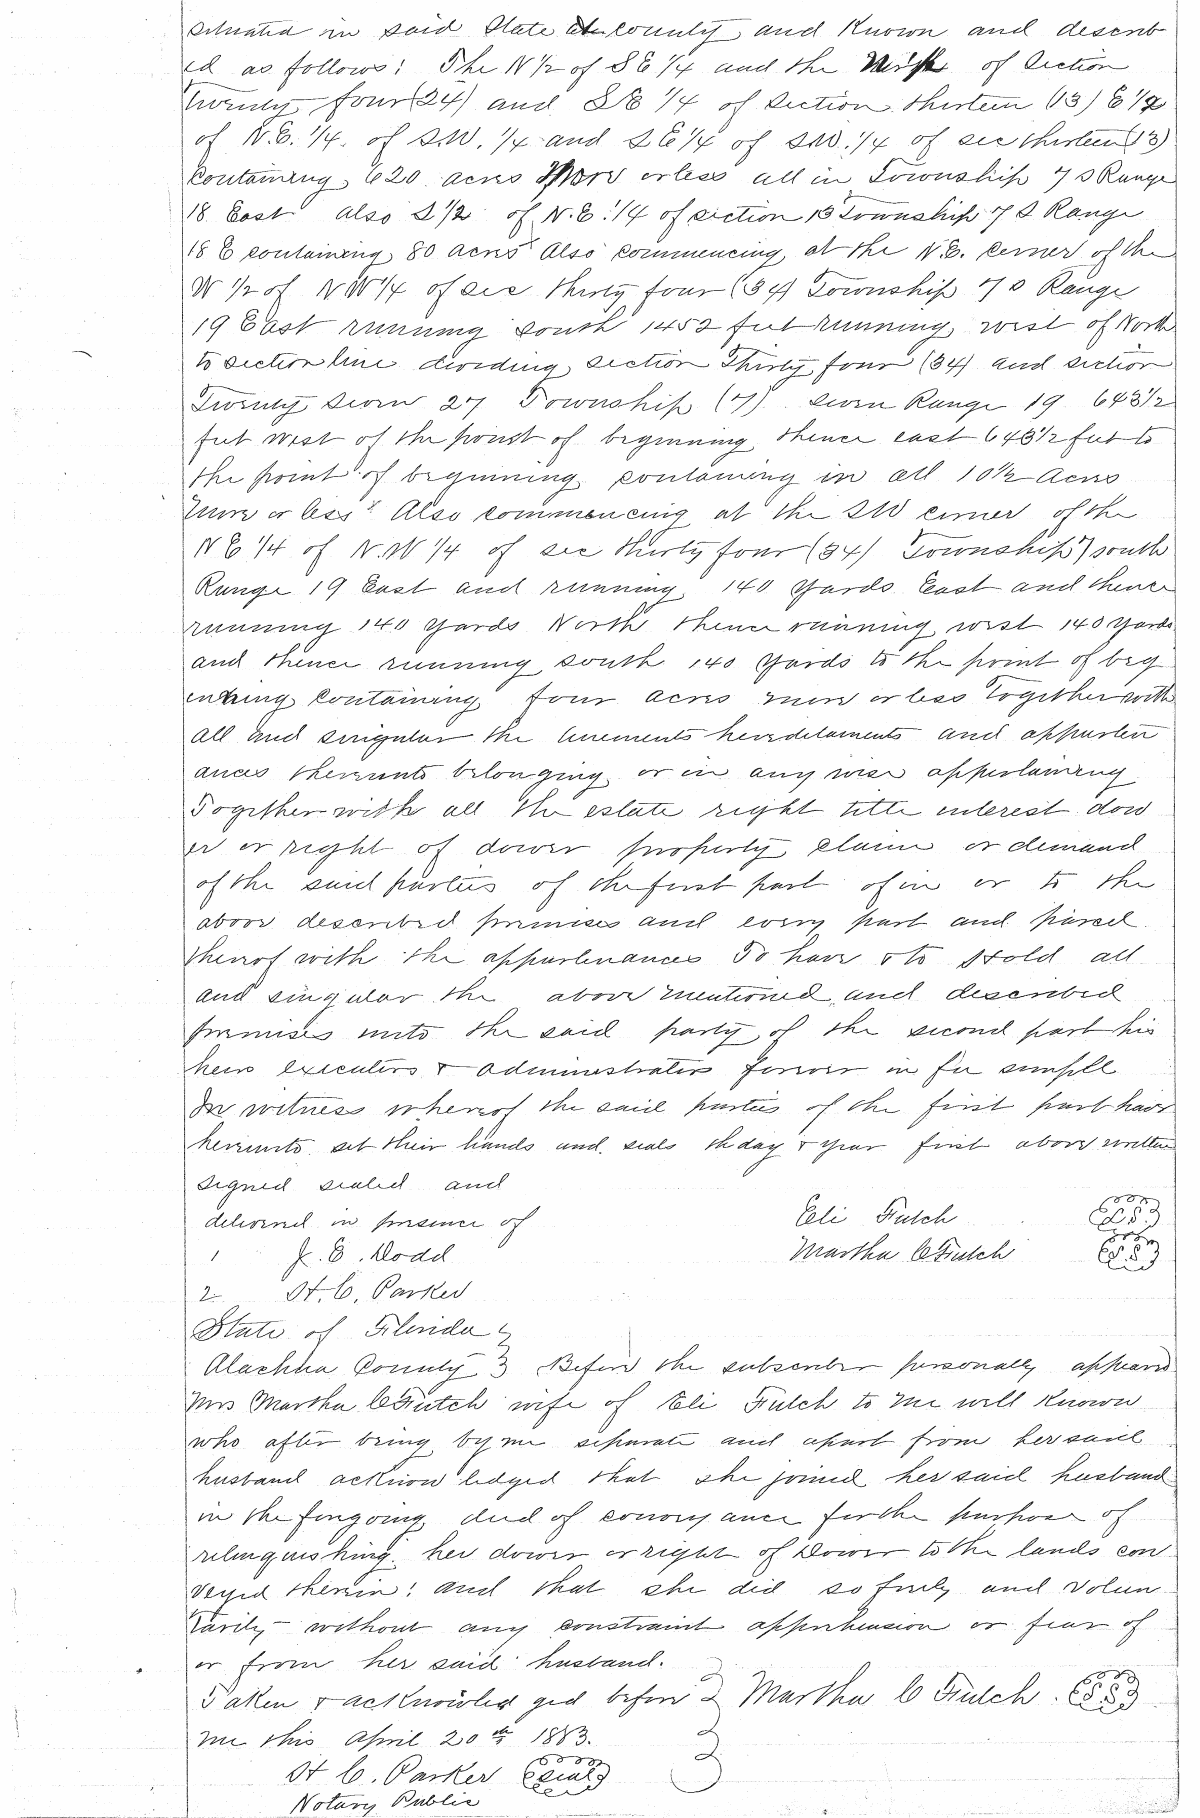 situated in said State & County and Known and describ
ed as follows: The N 1/2 of S E 1/4 and the of Section
Twenty four (24) and S E 1/4 of Section thirteen (13) E 1/2
of N.E. 1/4. of S.W. 1/4 and S E 1/4 of S.W. 1/4 of sec thirteen (13)
Containing 620 acres More or less all in Township 7 S Range
18 East also S 1/2 of N.E. 1/4 of section 13 Township 7 S Range
18 E containing 80 acres Also commencing at the N.E. corner of the
W 1/2 of N W 1/4 of sec thirty four (34) Township 7 S Range
19 East running south 1452 feet running west of North
to section line dividing section Thirty four (34) and section
Twenty seven 27 Township (7) seven Range 19 643 1/2
feet west of the point of beginning thence east 643 1/2 feet to
the point of beginning containing in all 10 1/2 Acres
more or less. Also commencing at the SW corner of the
N E 1/4 of N.W 1/4 of sec thirty four (34) Township 7 south
Range 19 East and running 140 yards East and thence
running 140 yards North thence running west 140 yards
and thence running south 140 yards to the point of beg
inning containing four acres more or less Together with
all and singular the tenements heredetaments and appurten
ances thereunto belonging or in any wise appertaining
Together with all the estate right title interest dow
er or right of dower property claim or demand
of the said parties of the first part of in or to the
above described premises and every part and parcel
thereof with the appurtenances To have & to Hold all
and singular the above mentioned and described
premises unto the said party of the second part his
heirs executors & administrators forever in fee simple
In witness whereof the said parties of the first part have
hereunto set their hands and seals th day & year first above written
signed sealed and
delivered in presence of Eli Futch
1 J. E. Dodd Martha C Futch
2 H. C. Parker
State of Florida
Alachua County } Before the subscriber personally appeared
Mrs Martha C Futch wife of Eli Futch to me well Known
who after being by me separate and apart from her said
husband acknowledged that she joined her said husband
in the forgoing deed of conveyance for the purpose of
relinquishing her dower or right of Dower to the lands con
veyed therein: and that she did so freely and volun
tarily without any constraint apprehension or fear of
or from her said husband.
Taken & acknowledged before } Martha C Futch
me this April 20th 1883.
H C. Parker (seal)
Notary Public